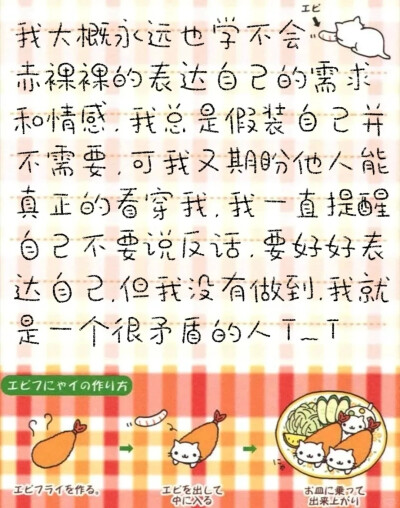 エビ
我大概永远也学不会
赤裸裸的表达自己的需求
和情感.我总是假装自己并
不需要.可我又期盼他人能
真正的看穿我.我一直提醒
自己不要说反话.要好好表
达自己.但我没有做到.我就
是一个很矛盾的人T_T
エビフにゃイの作り方
??
エビフライを作る。
エビを出して
中に入る
お皿に乗って
出来上がり